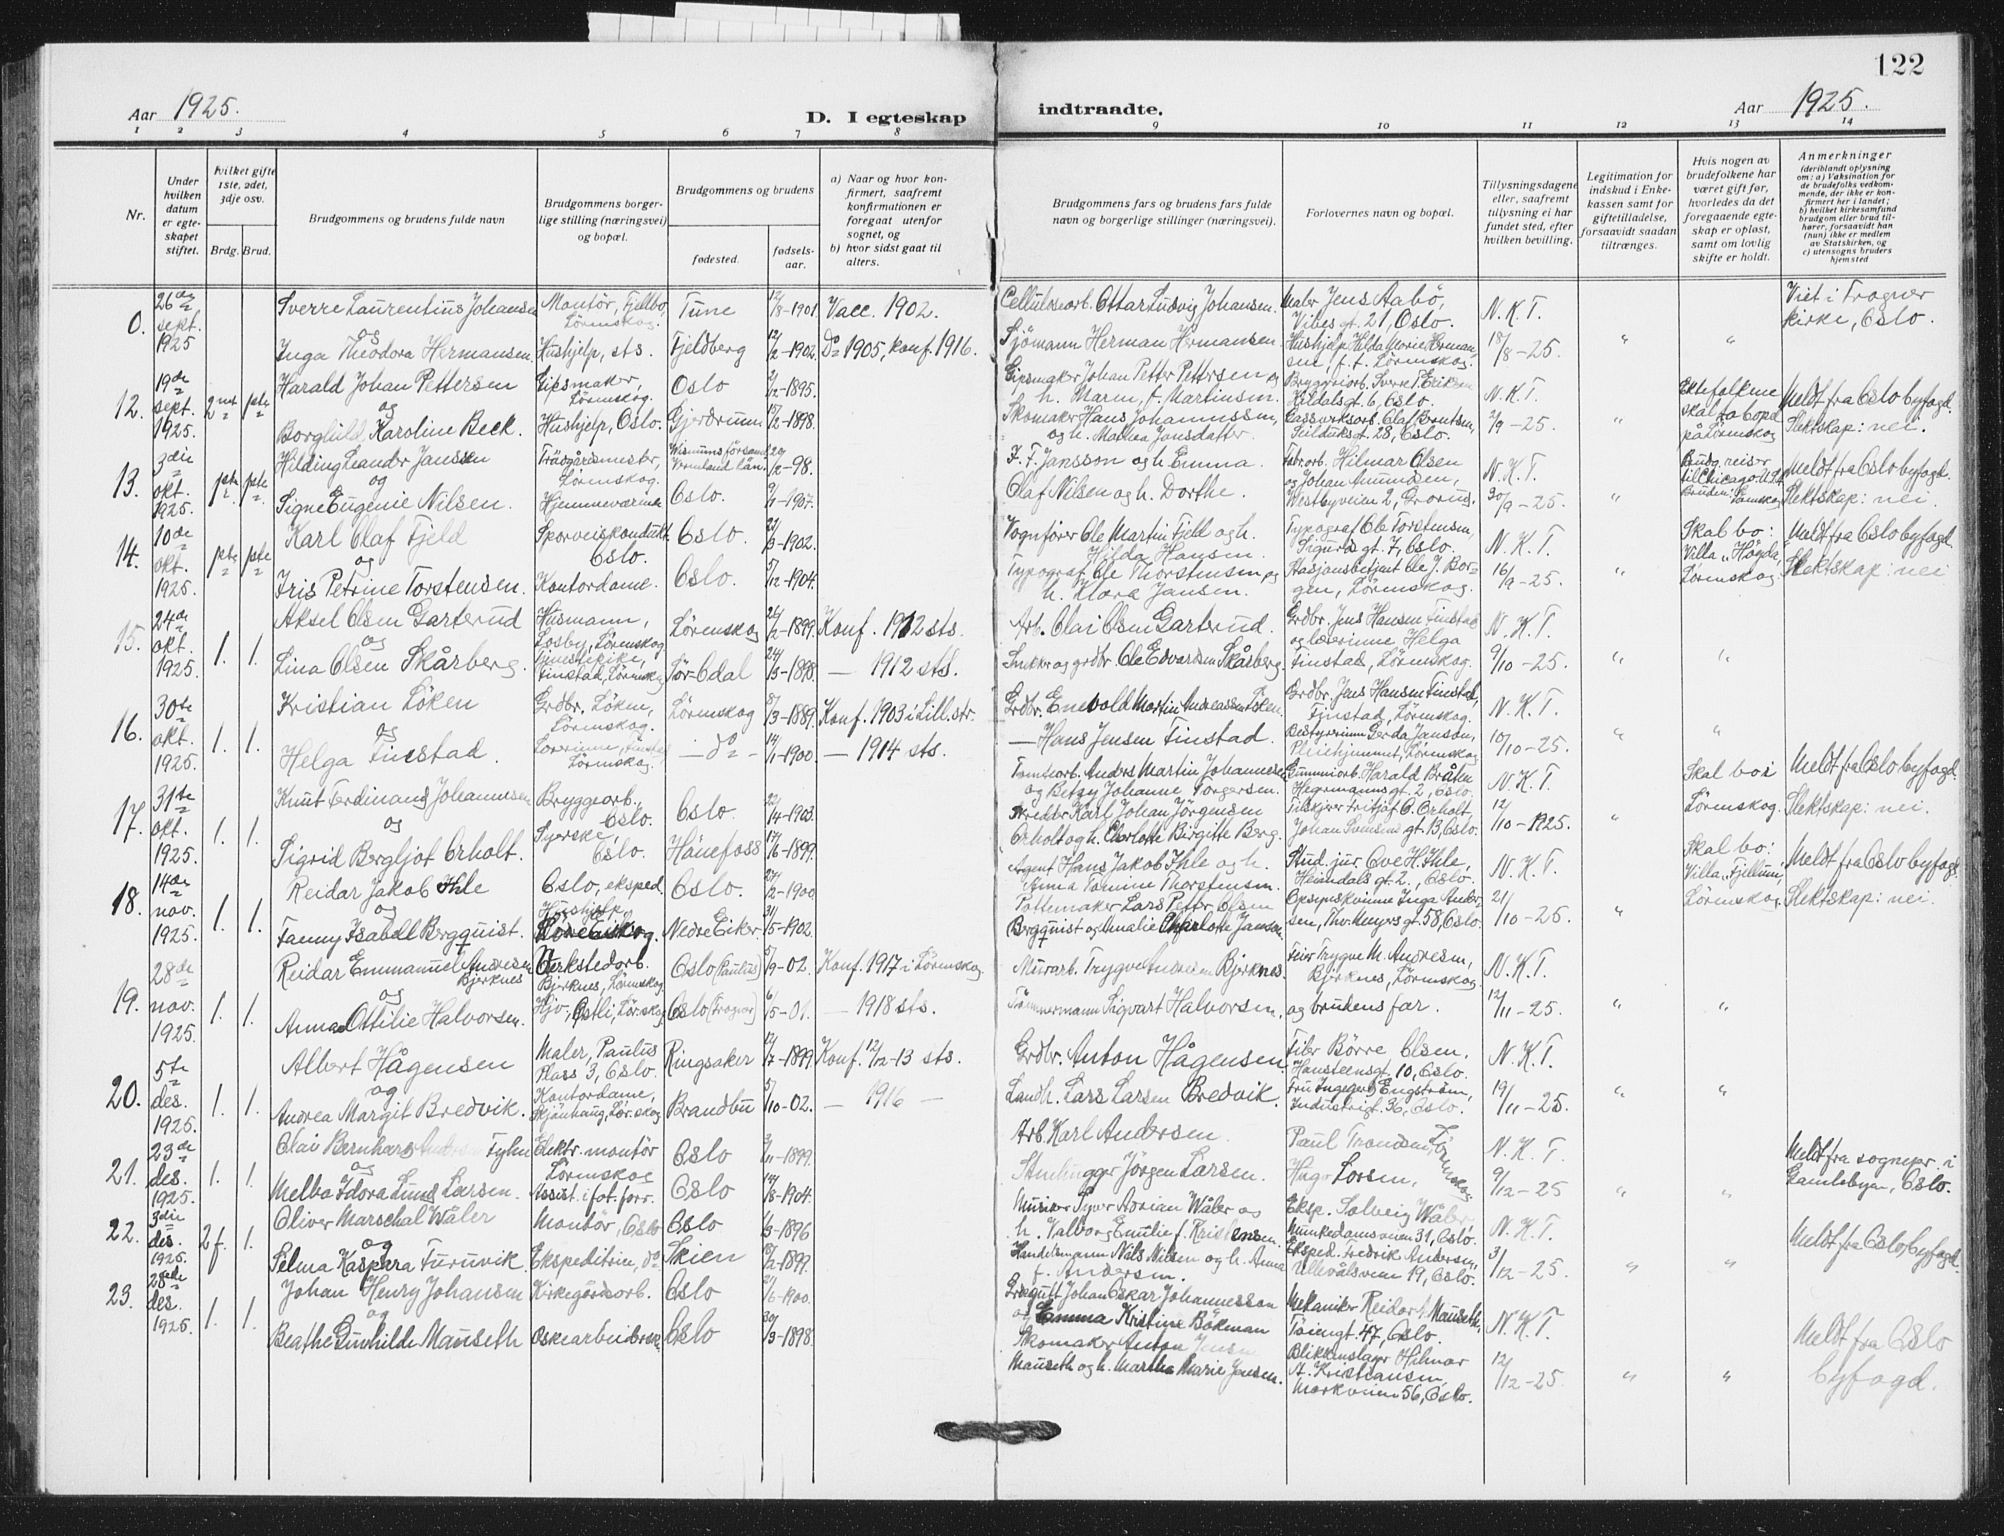 122
Aar 1925.
D. I egteskap indtraadte.
Aar 1925.
1 2 3 4 5 6 7 8 9 10 11 12 13 14
Nr.
Under hvilken datum er egteskapet stiftet.
hvilket gifte 1ste, 2det, 3dje osv.
Brdg. Brud.
Brudgommens og brudens fulde navn
Brudgommens borgerlige stilling (næringsvei) og bopæl.
Brudgommens og brudens
fødested.
fødselsaar.
a) Naar og hvor konfirmert, saafremt konfirmationen er foregaat utenfor sognet, og
b) hvor sidst gaat til alters.
Brudgommens fars og brudens fars fulde navn og borgerlige stillinger (næringsvei).
Forlovernes navn og bopæl.
Tillysningsdagene eller, saafremt tillysning ei har fundet sted, efter hvilken bevilling.
Legitimation for indskud i Enkekassen samt for giftetilladelse, forsaavidt saadan tiltrænges.
Hvis nogen av brudefolkene har været gift før, hvorledes da det foregaaende egteskap er opløst, samt om lovlig skifte er holdt.
Anmerkninger
(deriblandt oplysning om: a) Vaksination for de brudefolks vedkommende, der ikke er konfirmert her i landet; b) hvilket kirkesamfund brudgom eller brud tilhører, forsaavidt han (hun) ikke er medlem av Statskirken, og c) utensogns bruders hjemsted
0. 26de sept. 1925
Sverre Laurentius Johansen Montör, Fjellbo, Lörenskog. Tune 12/8-1901. Vacc. 1902.
og
Inga Theodora Hermansen Hushjelp, sts. Fjeldberg 12/2-1902. Do 1905, konf. 1916.
Cellulosearb. Ottar Ludvig Johansen. Maler Jens Aabö, Vibes gt. 21, Oslo. N.K.T.
Sjömann Herman Hermansen Hushjelp Hilda Marie Hermansen, f. f. Lörenskog. 18/8-25. " "
Viet i Frogner kirke, Oslo.
12. 19de sept. 1925. 2net pte
Harald Johan Pettersen Gipsmaker, Lörenskog. Oslo 2/12-1895.
og
Borghild Karoline Beck. Hushjelp, Oslo. Gjerdrum 15/12-1898.
Gipsmaker Johan Petter Pettersen og h. Maren, f. Martinsen. Bryggeriarb. Sverre P. Eriksen Hildalsgt. 6, Oslo. N.K.T.
Skomaker Hans Johannessen, og h. Mathea Jonsdatter. Gassverksarb. Olaf Berntsen, Seilduksgt. 28, Oslo. 2/9-25. "
Ektefolkene skal ta bopæl på Lörenskog
Meldt fra Oslo byfogd. Slektskap: nei.
13. 3die okt. 1925. pte pte
Hilding Leander Janssen Trädgårdsmester, Lörenskog. Vermland län. 29/12-98.
og
Signe Eugenie Nilsen. Hjemmeværende Oslo. 9/11-1907.
F. F. Jansson og h. Emma. Fabr.arb. Hilmar Olsen og Johan Amundsen, N.K.T.
Olaf Nilsen og h. Dorthe. Westbyveien 2, Grorud. 30/9-25. "
Brudg. reiser til Chicago U.S.A. Bruden: Lörenskog
Meldt fra Oslo byfogd. Slektskap: nei
14. 10de okt. 1925 pte pte
Karl Olaf Fjeld Sporveiskonduktör Oslo. Oslo. 27/3-1902.
og
Iris Petrine Torstensen. Kontordame. Oslo. 5/12-1904.
Vognförer Ole Martin Fjeld og h. Hilda Hansen. Typograf Ole Torstensen, Sigurds gt. 7, Oslo. N.K.T.
Typograf Ole Thorstensen og h. Klara Jansen. Stasjonsbetjent Ole J. Borgen, Lörenskog. 16/9-25. "
Skal bo: Villa "Högda, Lörenskog.
Meldt fra Oslo byfogd. Slektskap: nei
15. 24de okt. 1925 1. 1.
Aksel Olsen Garterud Husmann, Losby, Lörenskog Lörenskog 24/2-1899. Konf. 1912 sts.
og
Lina Olsen Skårberg. Tjenestepike, Finstad, Lörenskog Sör-Odal 24/3-1898. — 1912 sts.
Arb. Olai Olsen Garterud. Grdbr. Jens Hansen Finstad og lærerinne Helga N.K.T.
Snekker og grdbr. Ole Edvardsen Skårberg. Finstad, Lörenskog. 9/10-25. " "
16. 30te okt. 1925. 1. 1.
Kristian Löken Grdbr. Löken, Lörenskog. Lörenskog 8/3-1889. Konf. 1903 i Lill.str.
og
Helga Finstad. Lærerinne, Finstad Lörenskog. — do — 14/1-1900. — 1914 sts.
Grdbr. Enevold Martin Andreassen Löken. Grdbr. Jens Hansen Finstad, Finstad, Lörenskog. N.K.T.
— Hans Jensen Finstad. Bestyrerinne Gerda Janson, Pleiehjemmet, Lörenskog 10/10-25. " "
17. 31te okt. 1925. 1. 1.
Knut Ferdinand Johannesen Bryggearb. Oslo. Oslo. 22/4-1903.
og
Sigrid Bergljot Orholt. Syerske Oslo. Hönefoss 17/6-1899.
Tomtearb. Anders Martin Johannesen og Betzy Johanne Torgersen. Gummiarb. Harald Bråten Hegermannsgt. 2, Oslo. N.K.T.
Skredder Karl Johan Jörgensen Orholt og h. Charlotte Birgitte Berg. Tilskjærer Fritjof O. Orholt Johan Svensens gt. 13, Oslo. 12/10-1925. "
Skal bo i Lörenskog.
Meldt fra Oslo byfogd. Slektskap: nei.
18. 14de nov. 1925. 1. 1.
Reidar Jakob Ihle Oslo, eksped. Oslo. 27/2-1900
og
Fanny Isabell Bergquist. Hushjelp, Nedre Eiker. 31/5-1902.
Agent Hans Jakob Ihle og h. Anna Tomine Thorstensen. Stud. jur. Ove H. Ihle, Heimdals gt. 2., Oslo. N.K.T.
Pottemaker Lars Petter Olsen Bergquist og Amalie Charlotte Janson. Opsynskvinne Inga Andersen, Thv. Meyersgt. 58, Oslo 21/10-25. "
Skal bo: Villa "Fjellum, Lörenskog.
Meldt fra Oslo byfogd. Slektskap: nei.
19. 28de nov. 1925. 1. 1.
Reidar Emmanuel Andresen Bjerknes Verkstedarb. Bjerknes, Lörenskog Oslo (Paulus) 5/9-02. Konf. 1917 i Lörenskog
og
Anna Ottilie Halvorsen. Hjv. Östli, Lör.skog Oslo (Frogner) 6/5-01. — 1918 sts.
Murarb. Trygve Andresen Bjerknes. Feier Trygve M. Andresen, Bjerknes, Lörenskog. N.K.T.
Tömmermann Sigvart Halvorsen, og brudens far. 12/11-25. " "
20. 5te des. 1925. 1. 1.
Albert Hågensen Maler, Paulus Plass 3, Oslo. Ringsaker 12/7-1899. Konf. 12/12-13 sts.
og
Andrea Margit Bredvik. Kontordame, Skjönhaug, Lör.skog Brandbu 5/10-02. — 1916 —
Grdbr. Anton Hågensen. Filer Börre Olsen. Hansteensgt. 10, Oslo. N.K.T.
Landh. Lars Larsen Bredvik. Fru Ingegerd Engström, Industrigt. 36, Oslo. 19/11-25. " "
21. 23de des. 1925. 1. 1.
Olav Bernhard Andersen Fyhn Elektr. montör Lörenskog Oslo 3/11-1899.
og
Melba Idora Lund Larsen. Assist. i fot. forr. Oslo 14/8-1904.
Arb. Karl Andersen. Paul Tronsen, Lörenskog N.K.T.
Stenhugger Jörgen Larsen. Hugo Lorsen, 9/12-25 " "
Meldt fra sognepr. i Gamlebyen, Oslo.
22. 3die des. 1925. 2f. 1.
Oliver Marschal Wåler Montör, Oslo Oslo 1/3-1896
og
Selma Kaspara Furuvik. Ekspeditrise, do Skien 12/2-1899.
Musiker Syver Adrian Wåler og h. Valborg Emilie f. Kristensen. Eksp. Solveig Wåler, Munkedamsveien 31, Oslo. N.K.T.
Handelsmann Nils Nilsen og h. Anna f. Andersen. Eksped. Fredrik Andersen, Ullevålsveien 19, Oslo. 3/12-25. " "
Meldt fra Oslo byfogd.
23. 28de des. 1925. 1. 1.
Johan Henry Johansen Kirkegårdsarb. Oslo 21/6-1900.
og
Beathe Gunhilde Mauseth Eskearbeiderske Oslo 30/3-1898.
Johan Oskar Johannesson og Emma Kristine Bökman Mekaniker Reidar Mauseth, Töiengt. 47, Oslo. N.K.T.
Skomaker Anton Jensen Mauseth og h. Marthe Marie Jensen. Blikkenslager Hilmar A. Kristiansen, Markveien 56, Oslo. 12/12-25. " "
Meldt fra Oslo byfogd.